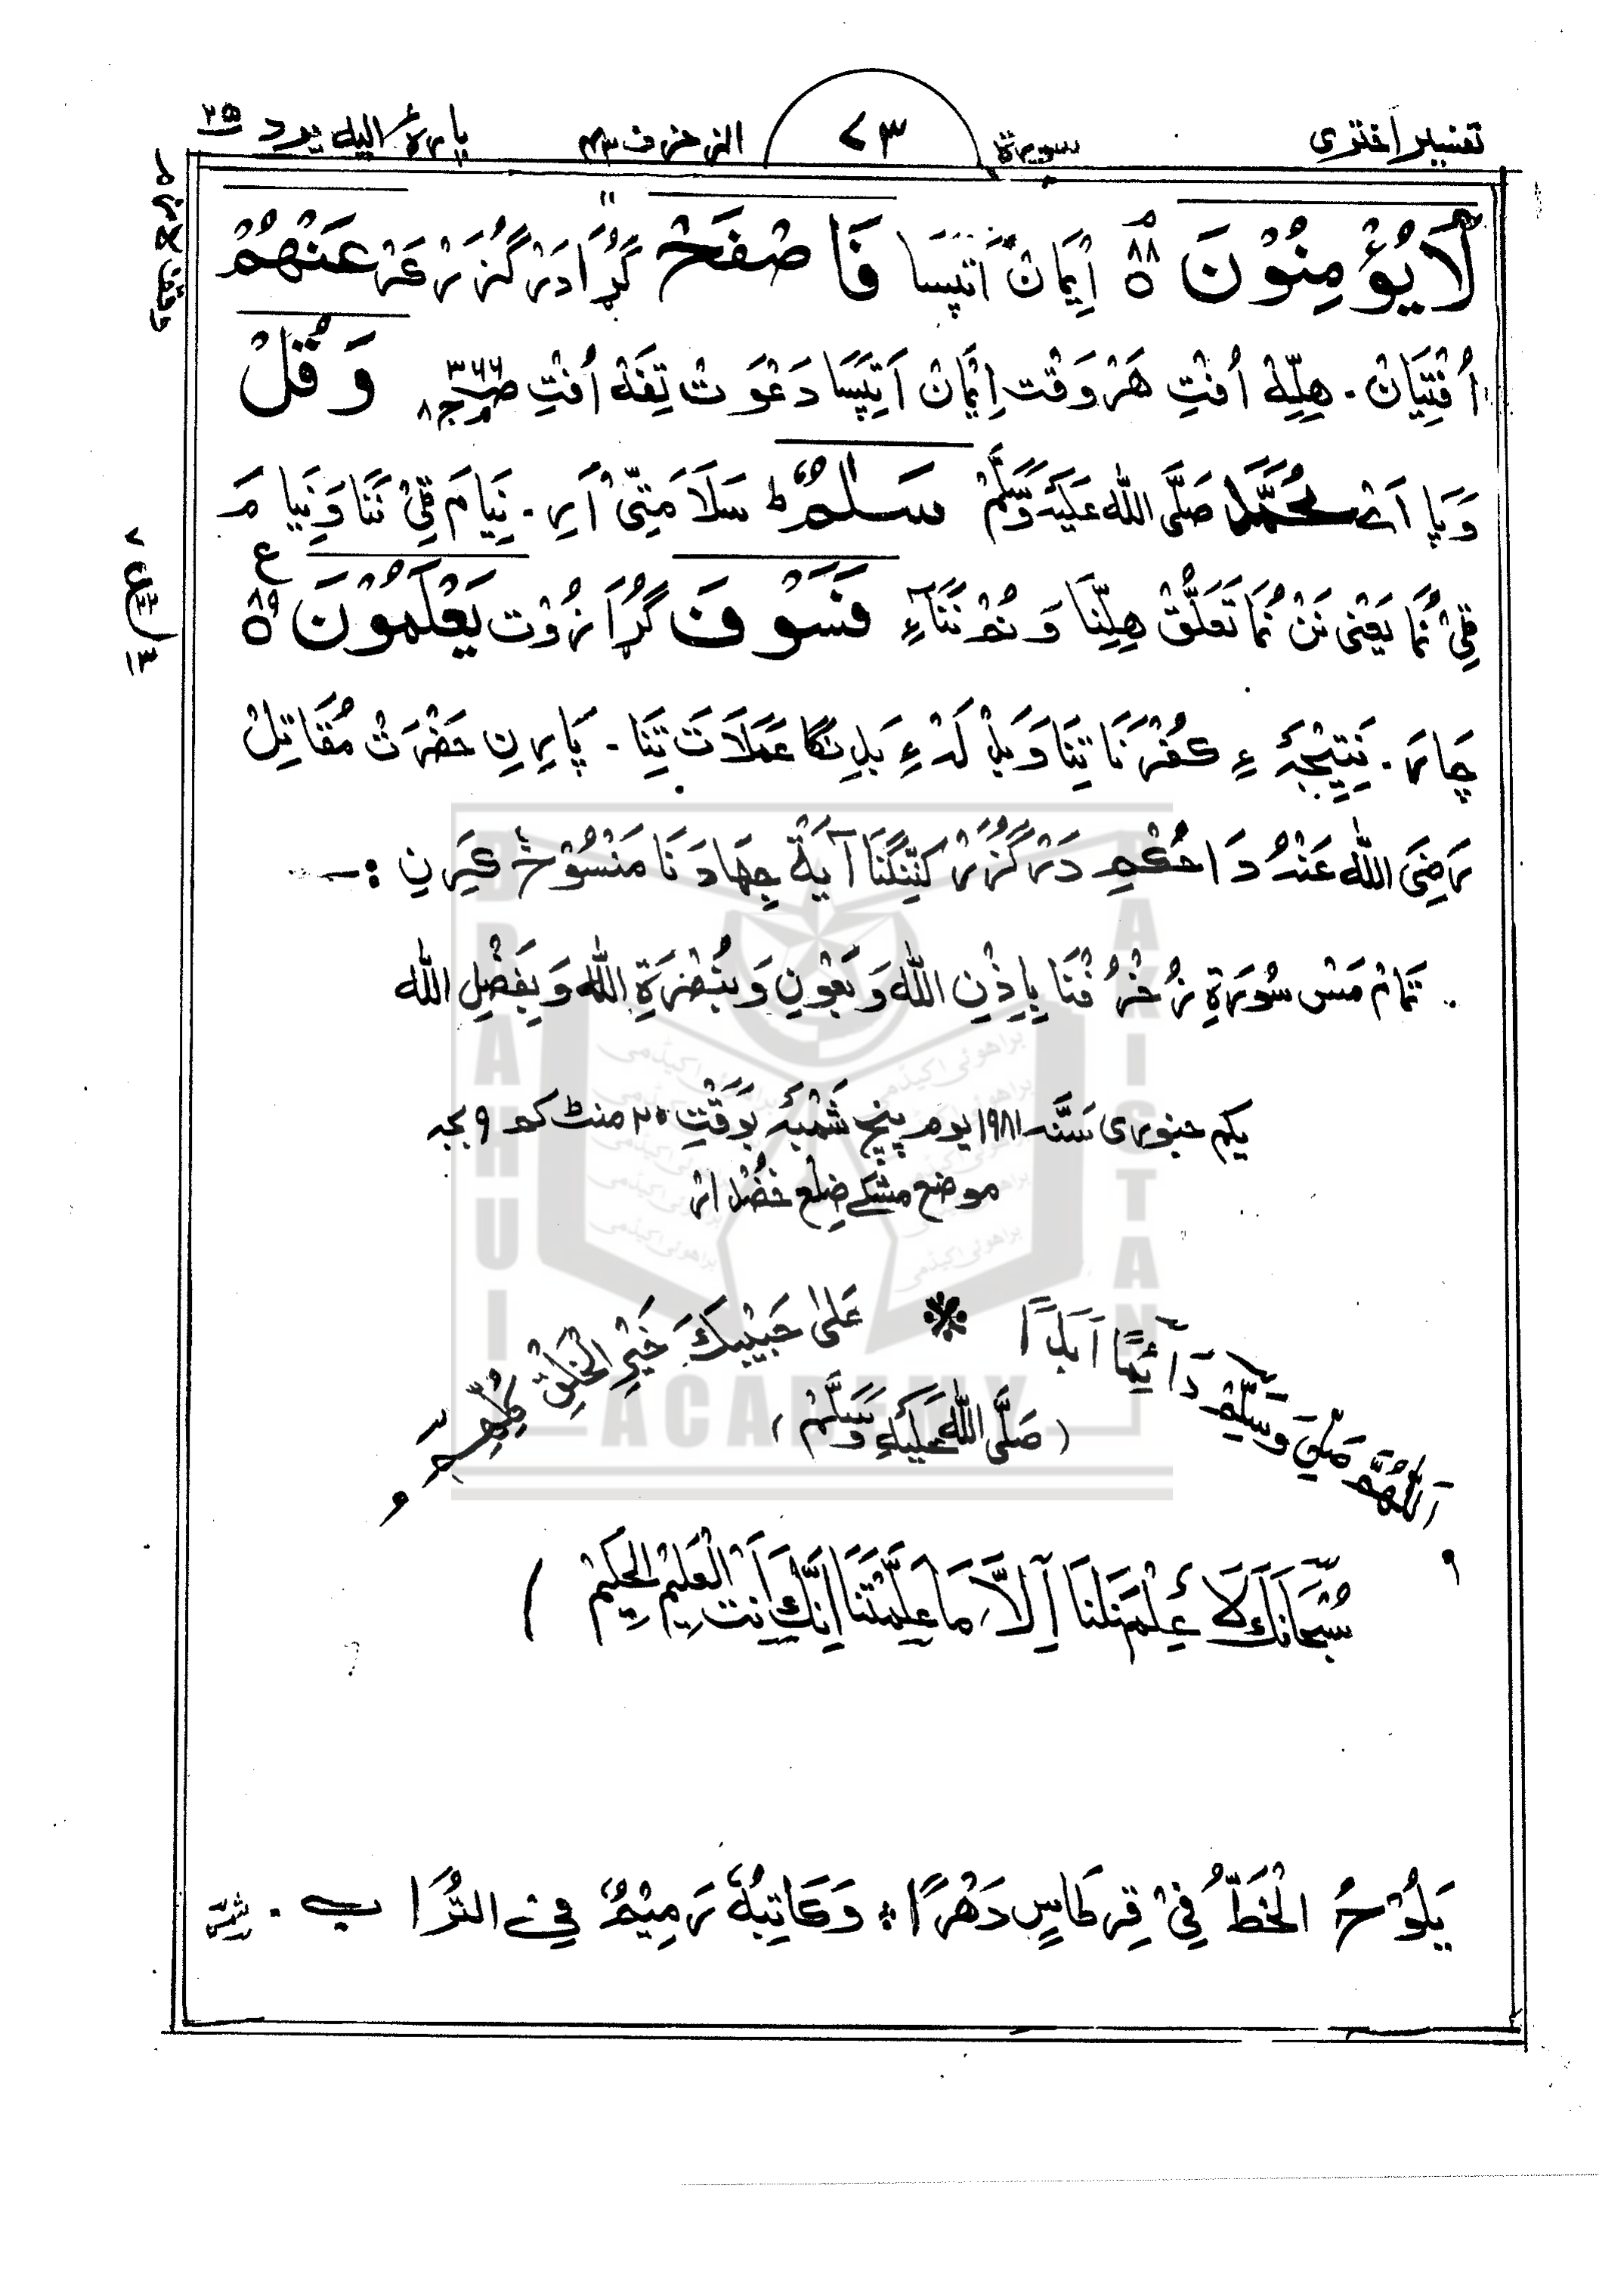 تفسیر اختری سورة ٧٣ الزخرف ٤٣ پارۀ الیه یرد ٢٥
وقف لازم
لَا يُؤْمِنُوْنَ ٨٨ اِیمَانْ اَتَپَسَا فَاصْفَحْ گُڑَا دَرْگُزَرْ کَرْ عَنْهُمْ
اُفْتِیَانْ. هِلِّهْ اُفْتِ هَرْوَقْت اِیْمَانْ اَتِپَسَا دَعْوَتْ تِفَهْ اُفْتِ صـ٣٦٦ جـ٨ وَقُلْ
وَپا اَےْ مُحَمَّد صَلَّى الله عَلَيْهِ وَسَلَّمْ سَلٰمٌ ط سَلَامَتِیْ اَرِ. نِیَامَ قِیْ نَنَا وَنِیَامَ
قِیْ نُمَا یَعْنِی نَنْ نُمَا تَعَلُّقْ هِلِّنَا وَنُمْ نَنَاءِ فَسَوْفَ گُڑَا زُوْت يَعْلَمُوْنَ ٨٩ ع
٧ ع ١٣
چَارَ. نَتِیْجَہ ءِ کُفْرْنَا تِنَا وَبَدْلَہْ ءِ بَدِنْگا عَمَلَاتَ تِنَا. پَارِنِ حَضْرَتْ مُقَاتِلْ
رَضِیَ اللّٰه عَنْهُ دَا حُکْمِ دَرْگُزَرْ کَنِّنْگنَا آیَةْ جِهَادَ نَا مَنْسُوْخْ کَرِنِ :-
. تَمَامْ مَسْ سُوْرَةِ زُخْرُفْنَا بِاِذْنِ الله وَبِعَوْنِ وَبِنُصْرَةِ الله وَبِفَضْلِ الله
یکم جنوری سَنَہ ١٩٨١ یوم پنج شَمْبَہ بَوَقْتِ ٢٥ منٹ کم ٩ بجہ
موضع مشکے ضلع خضدار
اَللّٰهُمَّ صَلِّ وَسَلِّمْ دَائِمًا اَبَدًا ❋ عَلٰى حَبِيْبِكَ خَيْرِ الْخَلْقِ كُلِّهِمِ
(صَلَّى الله عَلَيْهِ وَسَلَّمْ)
سُبْحَانَكَ لَا عِلْمَ لَنَا اِلَّا مَا عَلَّمْتَنَا اِنَّكَ اَنْتَ الْعَلِيْمُ الْحَكِيْمْ )
يَلُوْحُ الْخَطُّ فِيْ قِرْطَاسٍ دَهْرًا ؞ وَكَاتِبُهٗ رَمِيْمٌ فِيْ التُّرَابِ.
BRAHUI
ACADEMY
PAKISTAN
براهوئی اکیڈمی